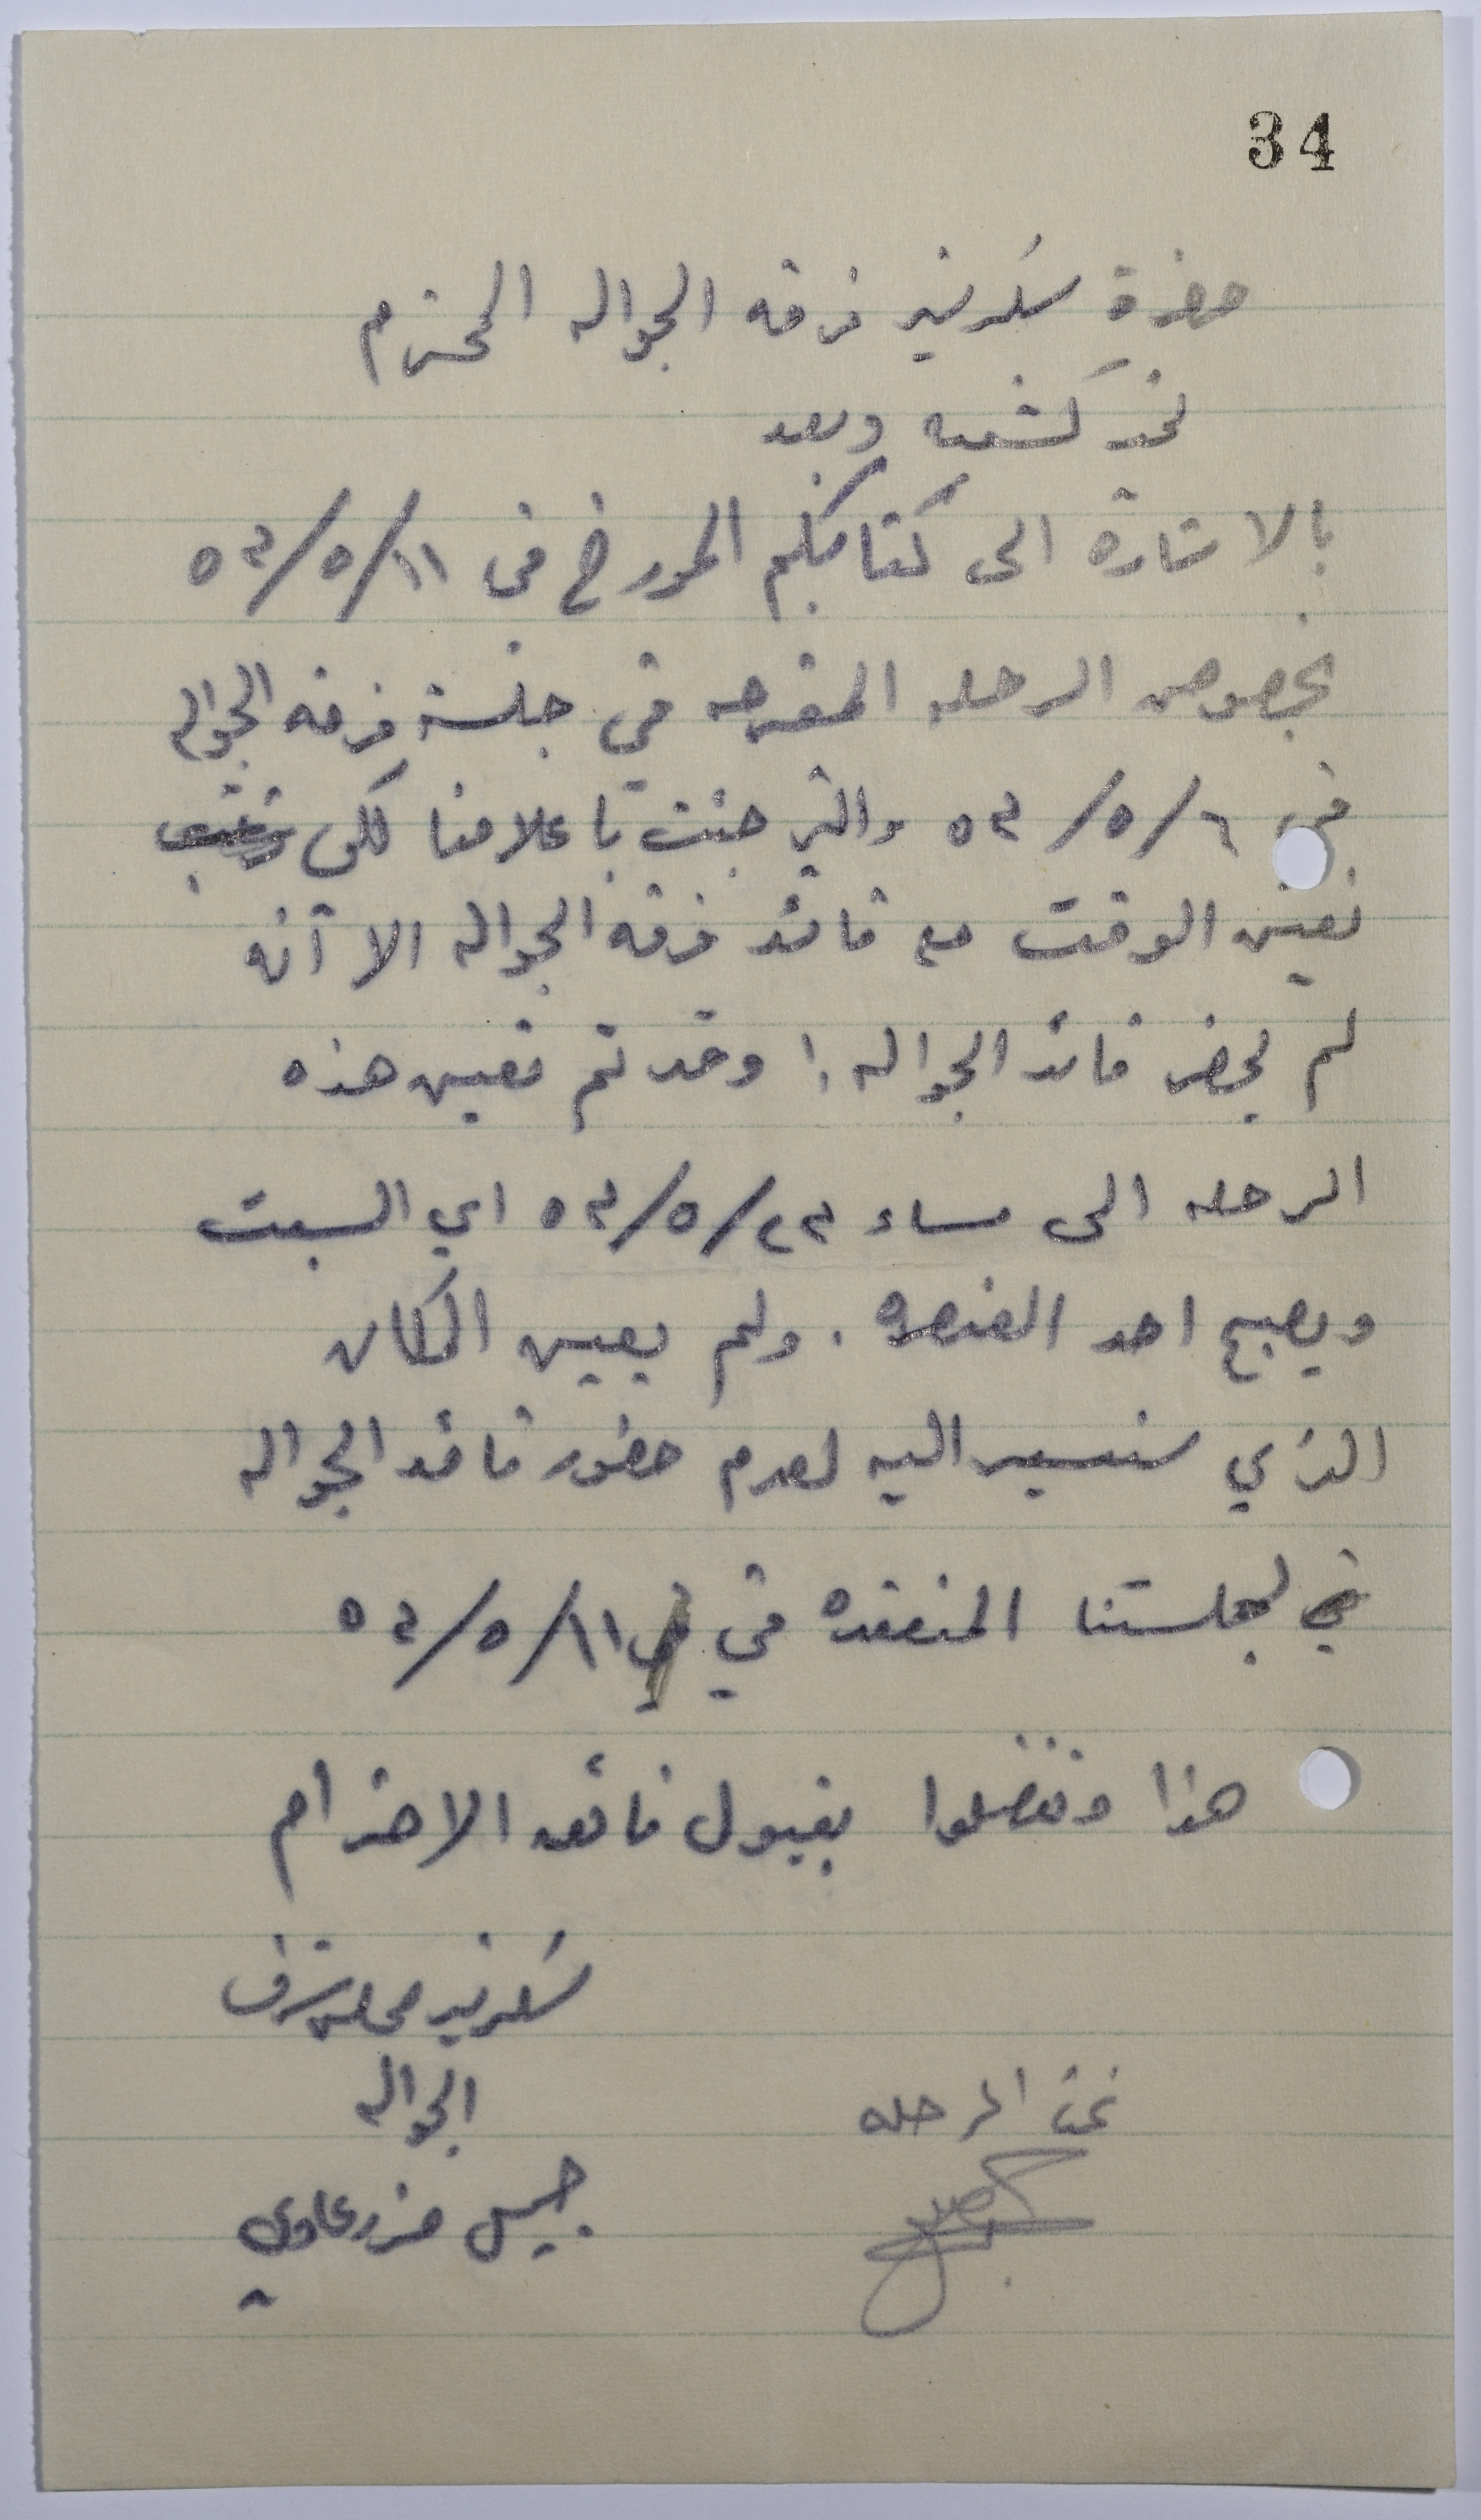 34
حضرة سكرتير فرقه الجواله المحترم
تحيه كشفيه وبعد
بالاشارة الى كتابكم المورخ في ١١/٥/٥٣
بخصوص الرحله المقترحه في جلسة فرقه الجواله
في ٦/٥/٥٣ والتي جئت باعلامنا لكي
نعين الوقت مع قائد فرقه الجواله الا آنه
لم يحضر قائد الجواله ! وقد تم تعيين هذه
الرحله الى مساء ٢٣/٥/٥٣ اي السبت
ويصبح احد العنصره . ولم يعين المكان
الذي سنسير اليه لعدم حضور قائد الجواله
في لجلستنا المنعقده في ١١/٥/٥٣
هذا وتفضلوا بقبول فائقه الاحترام
سكرتير مجلس شرف
الجواله
تمت الرحله
جميل